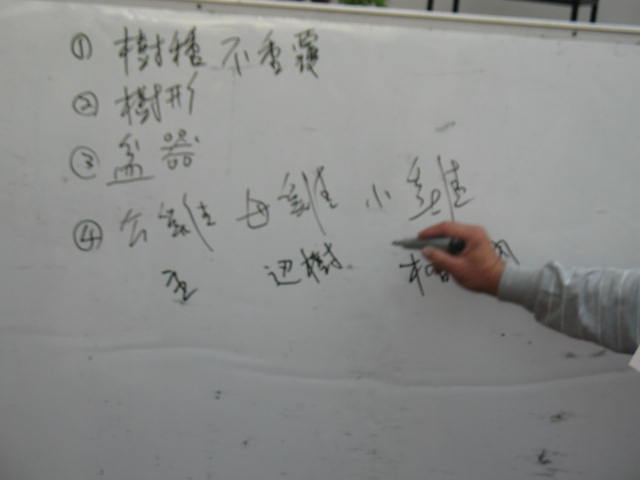 ① 樹種不重覆
② 樹形
③ 盆器
④ 公雞 母雞 小雞
主 边樹